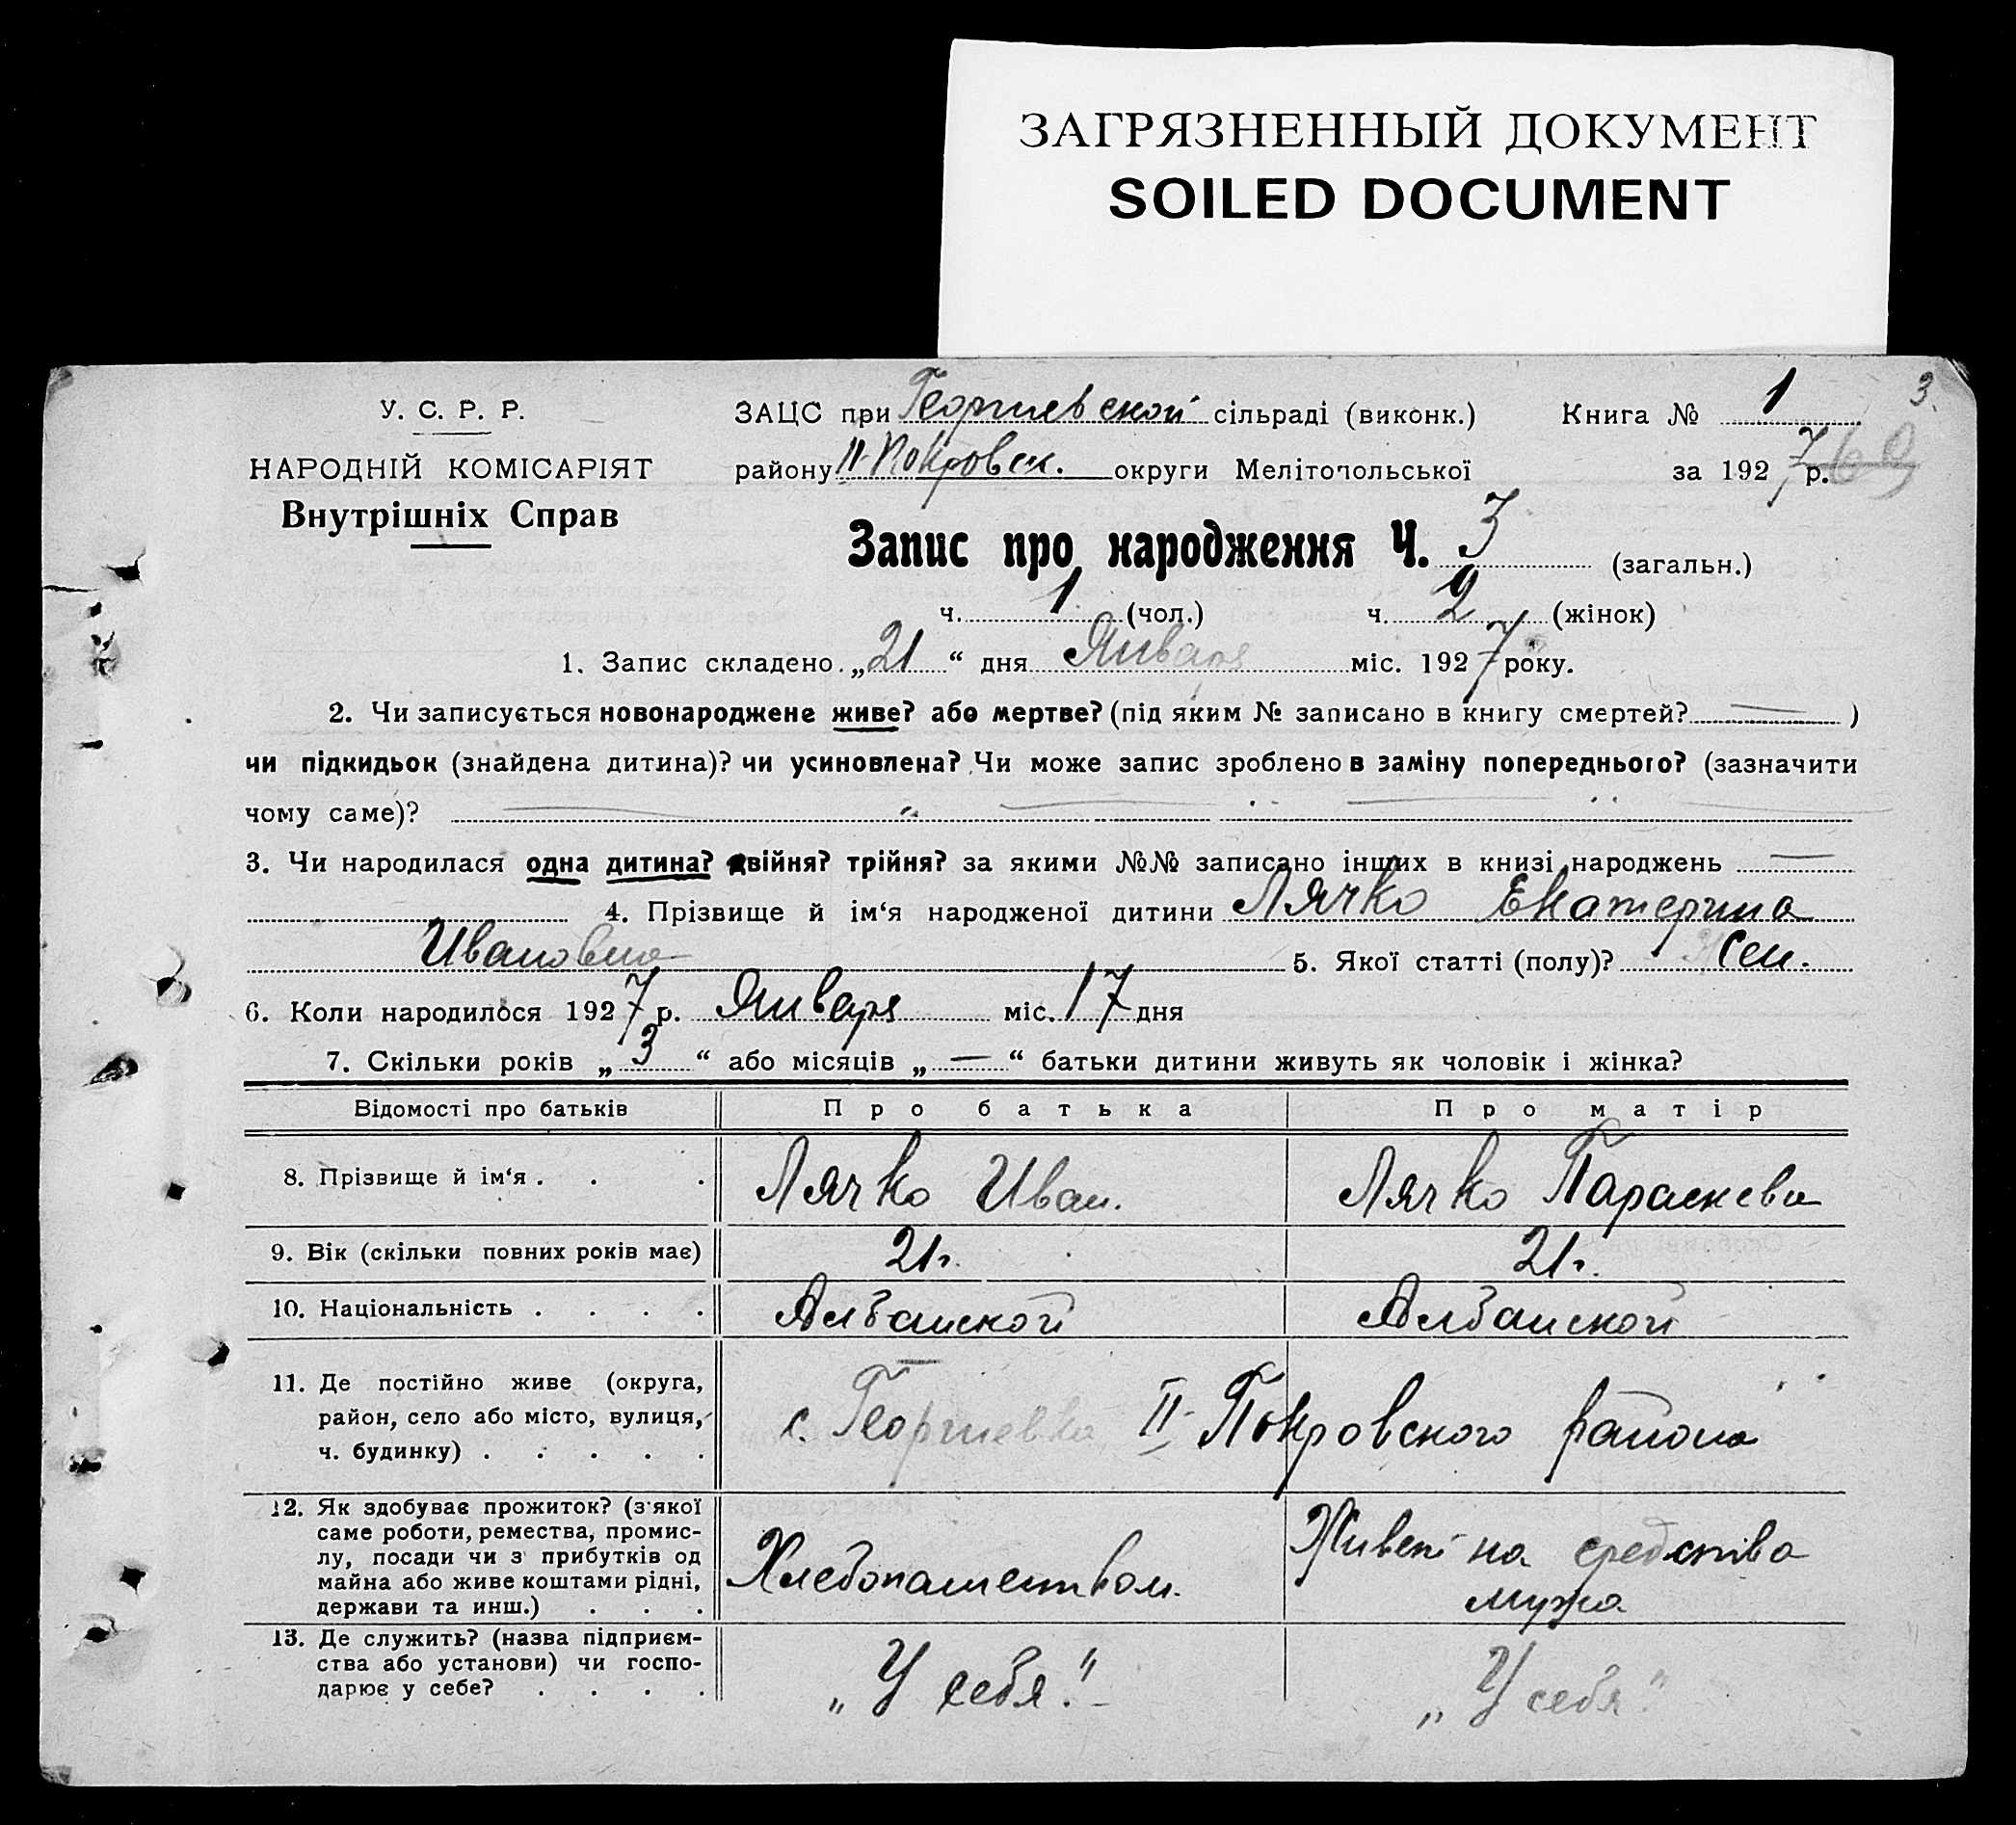 ЗАГРЯЗНЕННЫЙ ДОКУМЕНТ
SOILED DOCUMENT
3.
У. С. Р. Р.
НАРОДНІЙ КОМІСАРІЯТ
Внутрішніх Справ
ЗАЦС при Георгиевской сільраді (виконк.) Книга № 1
району II-Покровск. округи Мелітопольської за 1927 р.
Запис про народження Ч. 3 (загальн.)
ч. 1 (чол.) ч. 2 (жінок)
1. Запис складено „21“ дня Января міс. 1927 року.
2. Чи записується новонароджене живе? або мертве? (під яким № записано в книгу смертей? — )
чи підкидьок (знайдена дитина)? чи усиновлена? Чи може запис зроблено в заміну попереднього? (зазначити
чому саме)?
3. Чи народилася одна дитина? двійня? трійня? за якими №№ записано інших в книзі народжень —
4. Прізвище й ім‘я народженої дитини Лячко Екатерина
Ивановна 5. Якої статті (полу)? Жен.
6. Коли народилося 1927 р. Января міс. 17 дня
7. Скільки років „3“ або місяців „—“ батьки дитини живуть як чоловік і жінка?
Відомості про батьків Про батька Про матір
8. Прізвище й ім‘я . . . Лячко Иван. Лячко Параскева
9. Вік (скільки повних років має) 21 г. 21 г.
10. Національність . . . . Албанской Албанской
11. Де постійно живе (округа,
район, село або місто, вулиця,
ч. будинку) . . . . . с. Георгиевка II-Покровского района
12. Як здобуває прожиток? (з якої
саме роботи, ремества, промис-
лу, посади чи з прибутків од
майна або живе коштами рідні,
держави та инш.) . . . Хлебопашеством. Живет на средства
мужа
13. Де служить? (назва підприєм-
ства або установи) чи госпо-
дарює у себе? . . . . „У себя." „У себя"